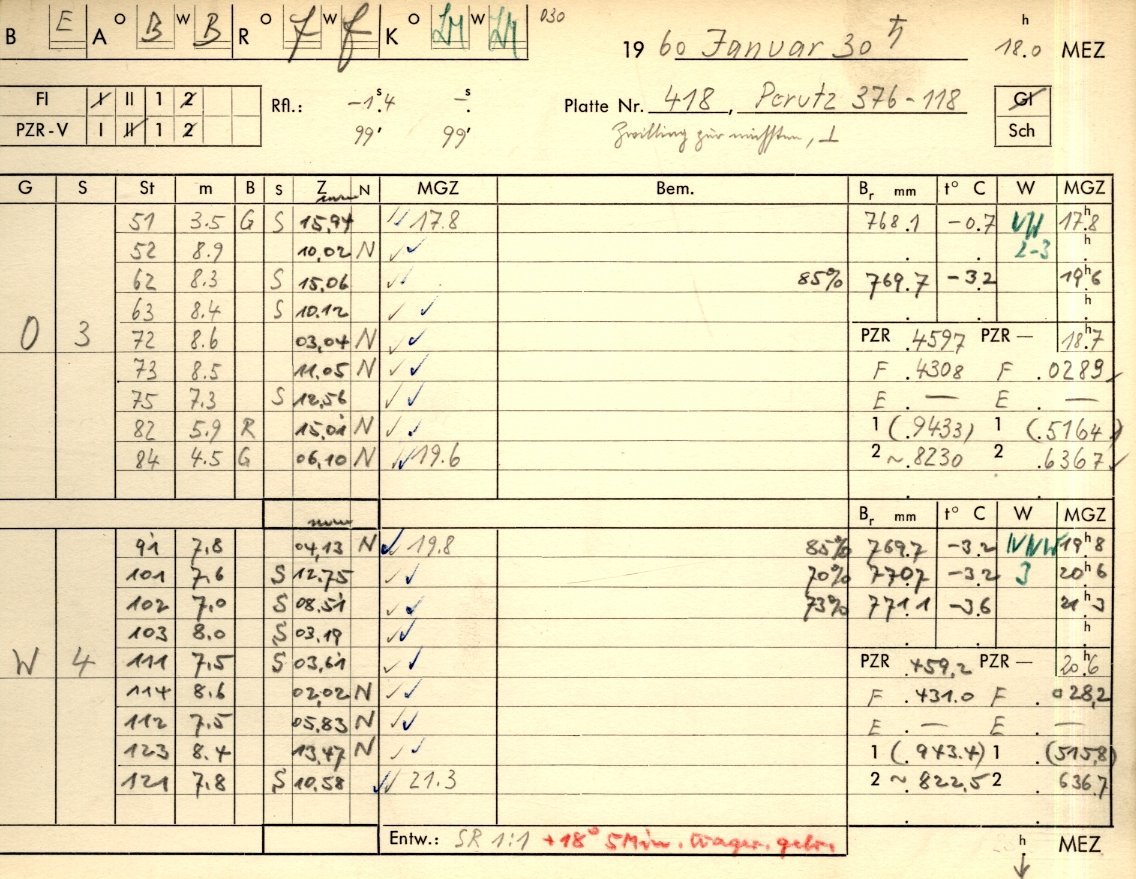 B E A O B W B R O f W f K O W 030
1960 Januar 30 ♄ h 18.0 MEZ
FI I II 1 2 Rfl.: -1.ˢ4 -.ˢ Platte Nr. 418, Perutz 376-118 Gl
PZR-V I II 1 2 99' 99' Zwilling zur nächsten, ⊥ Sch
G S St m B S Z N MGZ Bem. Br mm t° C W MGZ
51 3.5 G S 15,94 17.8 768.1 -0.7 17.ʰ8
52 8.9 10,02 N 2-3 h
62 8.3 S 15,06 85% 769.7 -3.2 19.ʰ6
63 8.4 S 10,12 h
O 3 72 8.6 03,04 N PZR .4597 PZR — 18.ʰ7
73 8.5 11,05 N F .4308 F .0289
75 7.3 S 12,56 E . — E . —
82 5.9 R 15,01 N 1 (.9433) 1 (.5164)
84 4.5 G 06,10 N 19.6 2 ~.8230 2 .6367
Br mm t° C W MGZ
91 7,8 04,13 N 19.8 85% 769.7 -3.2 NNW 19.ʰ8
101 7,6 S 12,75 70% 770.7 -3.2 3 20.ʰ6
102 7,0 S 08,51 73% 771.1 -3.6 21.ʰ3
103 8,0 S 03,19 h
W 4 111 7,5 S 03,61 PZR .459,2 PZR — 20.ʰ6
114 8,6 02,02 N F .431.0 F .028,2
112 7,5 05,83 N E . — E . —
123 8,4 13,47 N 1 (.943.4) 1 (515,8)
121 7,8 S 10,58 21.3 2 ~.822,5 2 636,7
Entw.: SR 1:1 +18° 5 Min. gebr. h MEZ